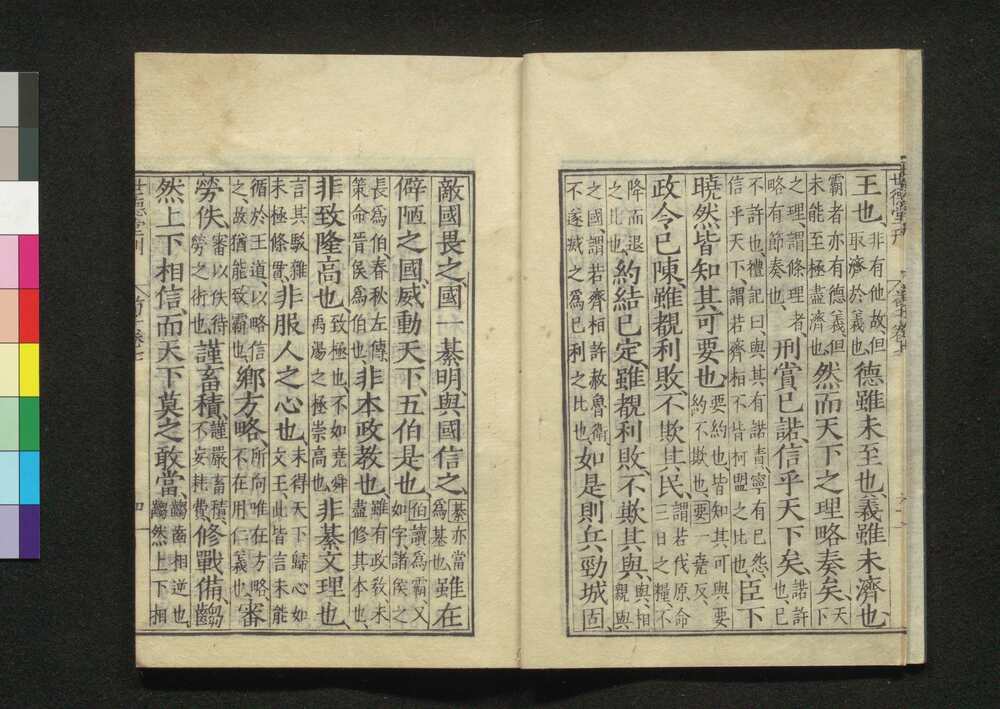 王也、非有他故但取濟於義也、德雖未至也義雖未濟也
霸者亦有德義但未能至極盡濟也、然而天下之理略奏矣、天下
之理謂條理者略有節奏也、刑賞已諾信乎天下矣、諾許也已
不許也禮記曰與其有諾責寧有已怨信乎天下謂若齊桓不背柯盟之比也、臣下
曉然皆知其可要也、要約也皆知其可與要約不欺也要一堯反、
政令已陳、雖覩利敗、不欺其民、謂若伐原命三日之糧不
降而退之比也、約結已定、雖覩利敗、不欺其與、與相親與
之國謂若齊桓許赦魯衛不遂滅之爲已利之比也、如是則兵勁城固、
敵國畏之、國一綦明、與國信之、綦亦當爲基也、雖在
僻陋之國、威動天下、五伯是也、伯讀爲霸又如字諸侯之
長爲伯春秋左傳策命晉侯爲伯也、非本政教也、雖有政敎未盡修其本也、
非致隆高也、致極也不如堯舜禹湯之極崇高也、非綦文理也、
言其駁雜未極條貫、非服人之心也、未得天下歸心如文王此皆言未能
循於王道以略信之故猶能致霸也、鄉方略、所向唯在方略不在用仁義也、審
勞佚、審以佚待勞之術也、謹畜積、謹嚴畜積不妄耗費、修戰備、齺
然上下相信、而天下莫之敢當、齺齒相迎也齺然上下相